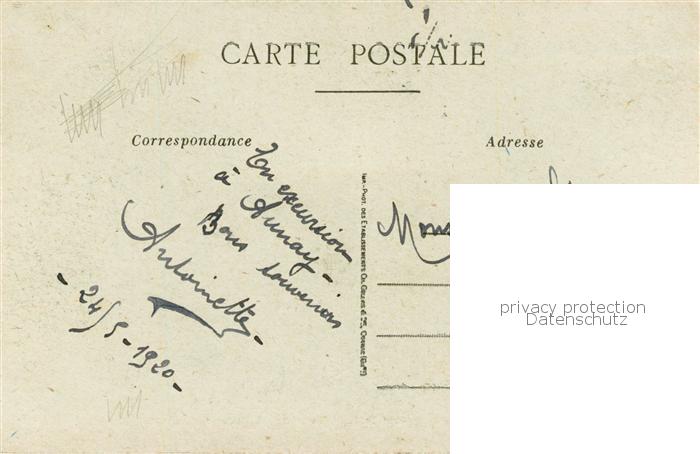 CARTE POSTALE
Correspondance
Adresse
En excursion
à Aunay -
Bons souvenirs
Antoinette -
- 24/5 - 1920 -
IMP.-PHOT. DES ETABLISSEMENTS
privacy protection
Datenschutz